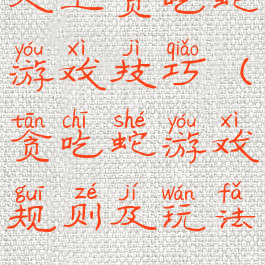 之上贪吃蛇
yóu xì jì qiǎo
游戏技巧（
tān chī shé yóu xì
贪吃蛇游戏
guī zé jí wán fǎ
规则及玩法